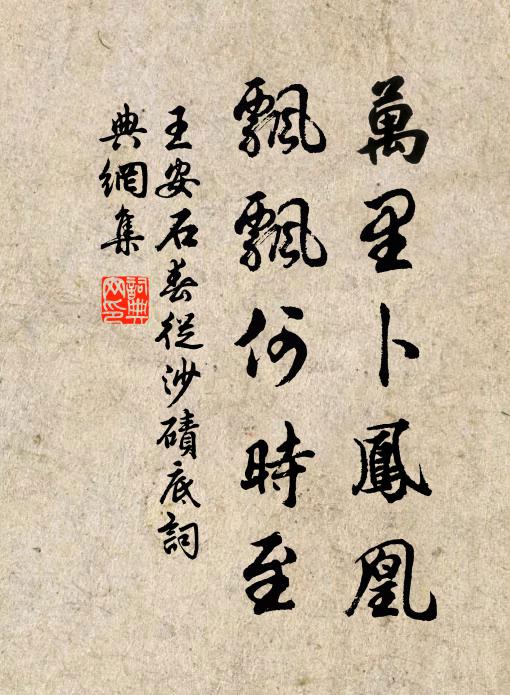 萬里卜鳳凰
飄飄何時至
王安石春從沙磧底詞
典網集
詞典
网印